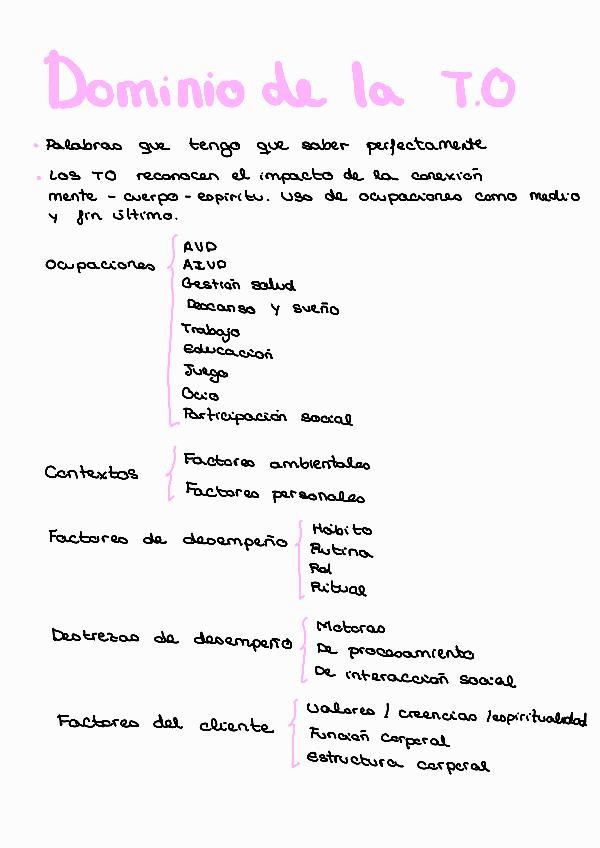 Dominio de la T.O
• Palabras que tengo que saber perfectamente
• Los TO reconocen el impacto de la conexión
mente - cuerpo - espíritu. Uso de ocupaciones como medio
y fin último.
Ocupaciones
AVD
AIVD
Gestión salud
Descanso y sueño
Trabajo
Educación
Juego
Ocio
Participación social
Contextos
Factores ambientales
Factores personales
Factores de desempeño
Hábito
Rutina
Rol
Ritual
Destrezas de desempeño
Motoras
De procesamiento
De interacción social
Factores del cliente
Valores / creencias / espiritualidad
Función corporal
Estructura corporal